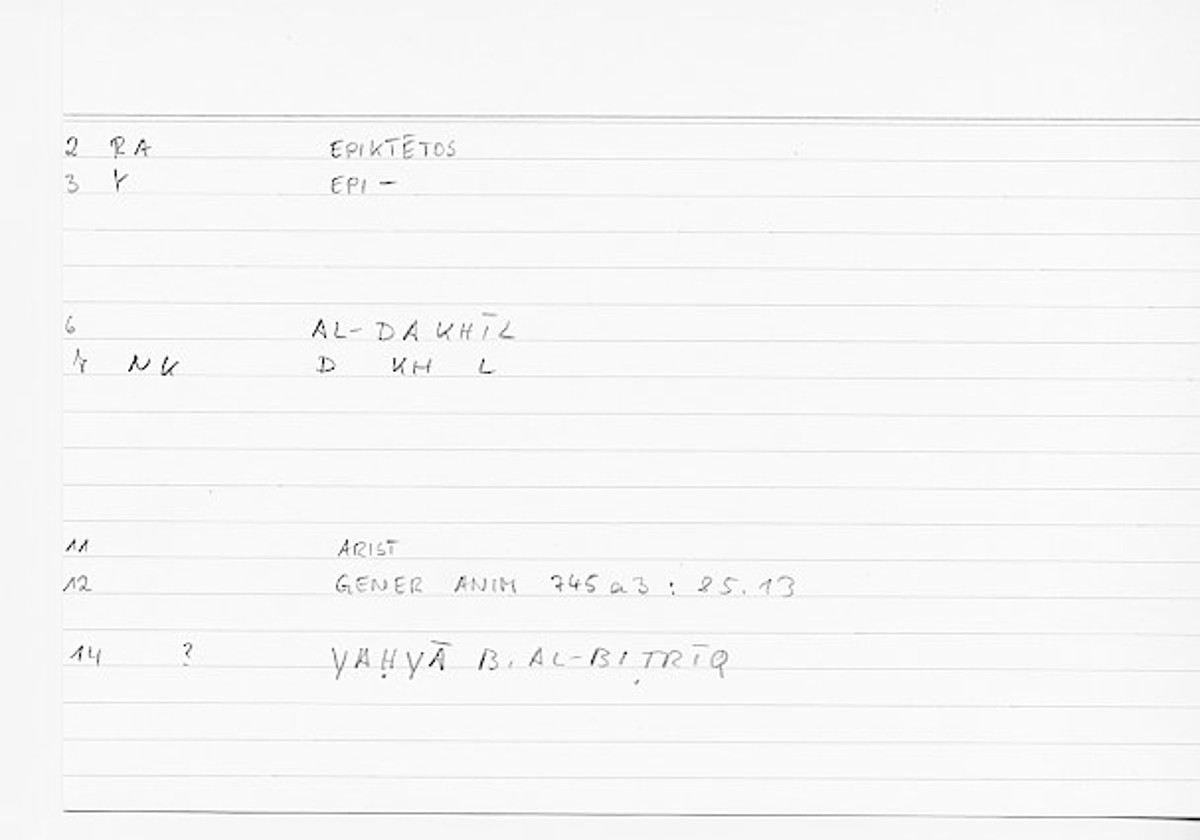 2 RA EPIKTĒTOS
3 Y EPI-
6 AL-DAKHĪL
7 NK D KH L
11 ARIST
12 GENER ANIM 745a3 : 85.13
14 ? YAḤYĀ B. AL-BIṬRĪQ